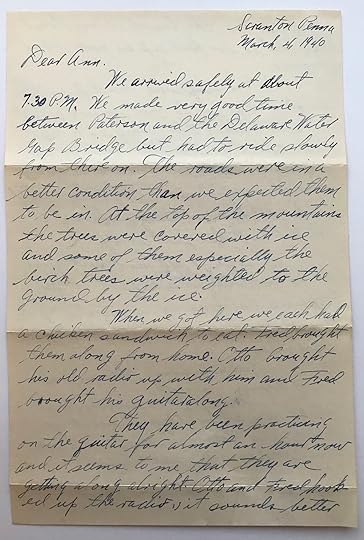 Scranton Penna
March, 4, 1940
Dear Ann.
We arrived safely at about
7.30 P.M. We made very good time
between Paterson and the Delaware Water
Gap Bridge but had to ride slowly
from there on. The roads were in a
better condition than we expected them
to be in. At the top of the mountains
the trees were covered with ice
and some of them especially the
birch trees were weighted to the
ground by the ice.
When we got here we each had
a chicken sandwich to eat. Fred brought
them along from home. Otto brought
his old radio up with him and Fred
brought his guitar along.
They have been practicing
on the guitar for almost an hour now
and it seems to me that they are
getting along alright. Otto and Fred hook-
ed up the radio, it sounds better